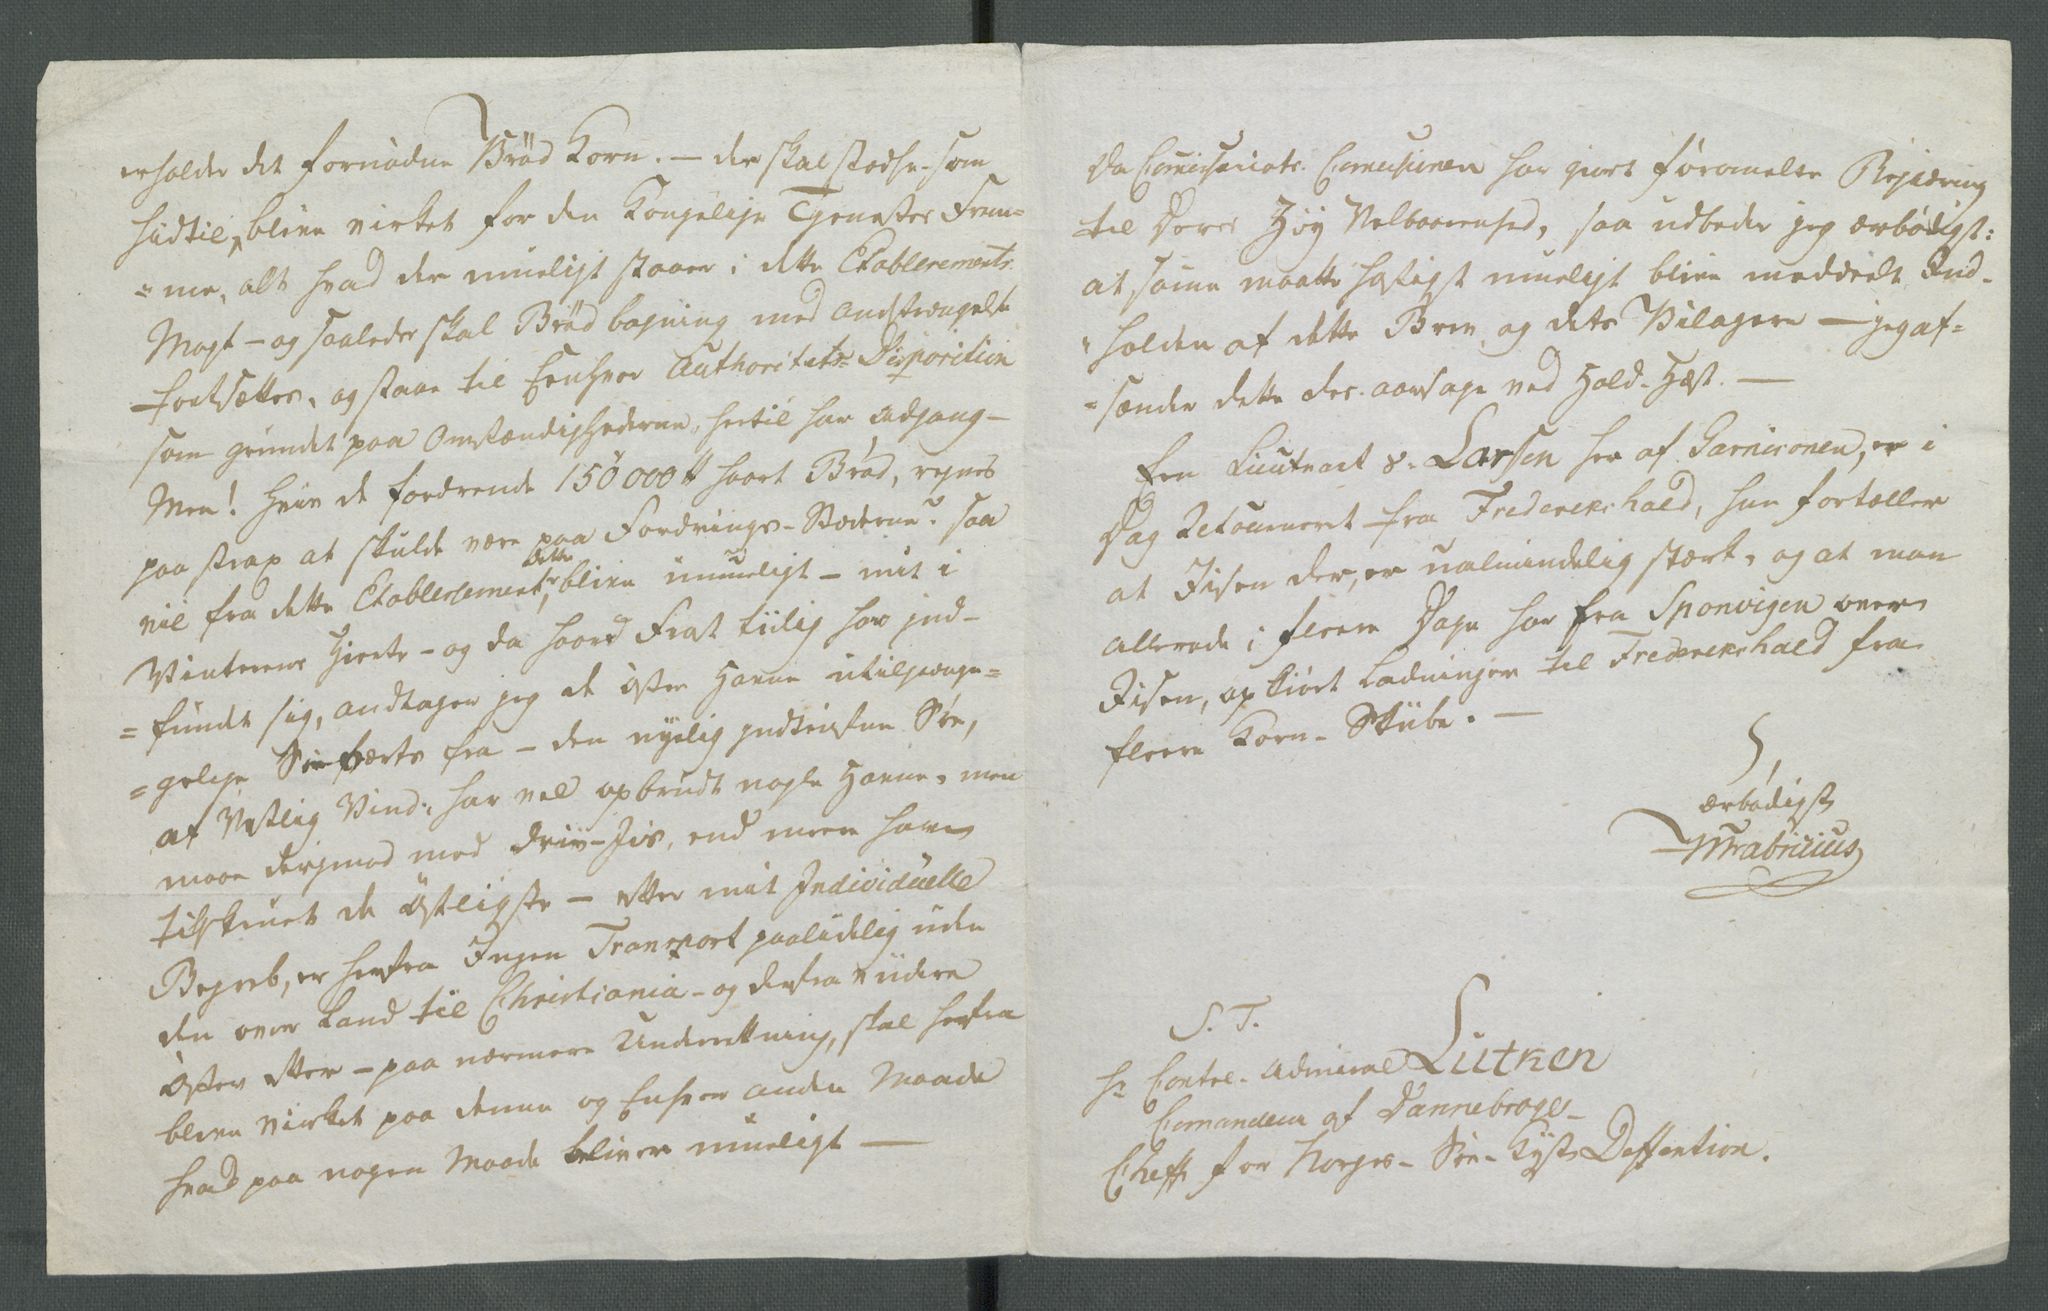 erholder det fornødne Brød Korn. — der skal stedse som
hidtil, blive virket for den Kongelige Tjenestes Frem=
=me, alt hvad der mueligt staaer i dette Etablesements
Magt — og saaledes skal Brød bagning med Anstrængelse
fortsættes, og staae til Enhver Authoritets Disposition
som grundet paa Omstændighederne, hertil har Adgang —
Men! hvis de fordrende 150000 ℔ haart Brød, regnes
paa strax at skulde være paa Fordrings-Stæderne? saa
vil fra dette Etablessement, dette blive umueligt — mit i
Vinterens Hierte — og da haard Frost tiilig har ind=
=fundet sig, andtager jeg de Øster Havne utilgænge=
=gelige Søeværts fra — den nyelig indtrufne Søe,
af Vestlig Vind, har vel opbrudt nogle Havne, men
maae derjmod med Driv-Jis, end meere have
tilskruet de Østligste — efter mit Individuelle
Begreb, er herfra Ingen Transport paalidelig uden
den over Land til Christiania — og derfra viidere
Øster efter — paa nærmere Underretning, skal herfra
blive virket paa denne og Enhver anden Maade
hvad paa nogen Maade bliver mueligt —
Da Commissariats Commissionen har giort foromelte Reqvering
til Deres Høy Velbaarenhed, saa udbeder jeg ærbødigst:
at samme maatte hastigst mueligt blive meddeelt Ind=
=holden af dette Brev, og dets Bilagere — jeg af=
=sænder dette des aarsage ved Hold-Hæst. —
Een Lieutnant v. Larssen her af Garnisonen, er i
Dag Retourneret fra Fredericshald, hun fortæller
at Jisen der, er ualmindelig stærk, og at man
allerede i fleere Dage har fra Sponvigen over
Jisen, op kiørt Ladninger til Fredericshald fra
fleere Korn-Skibe. —
ærbødigst
Fabricius
S. T.
Hr Contre-Admiral Lütken
Comandeur af Dannebroge-
Cheff for Norges-Søe-Kyst Deffention.